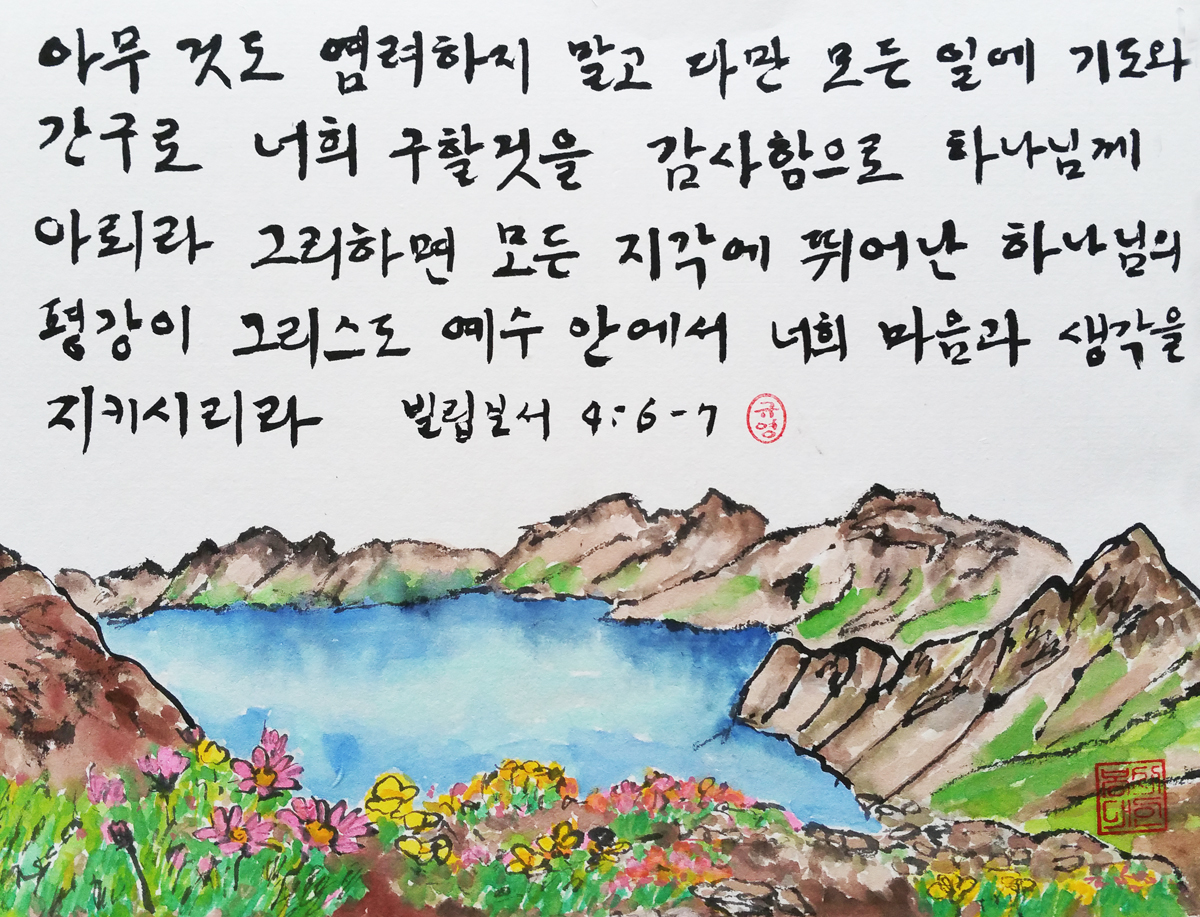 아무 것도 염려하지 말고 다만 모든 일에 기도와
간구로 너희 구할것을 감사함으로 하나님께
아뢰라 그리하면 모든 지각에 뛰어난 하나님의
평강이 그리스도 예수 안에서 너희 마음과 생각을
지키시리라 빌립보서 4:6-7 규영